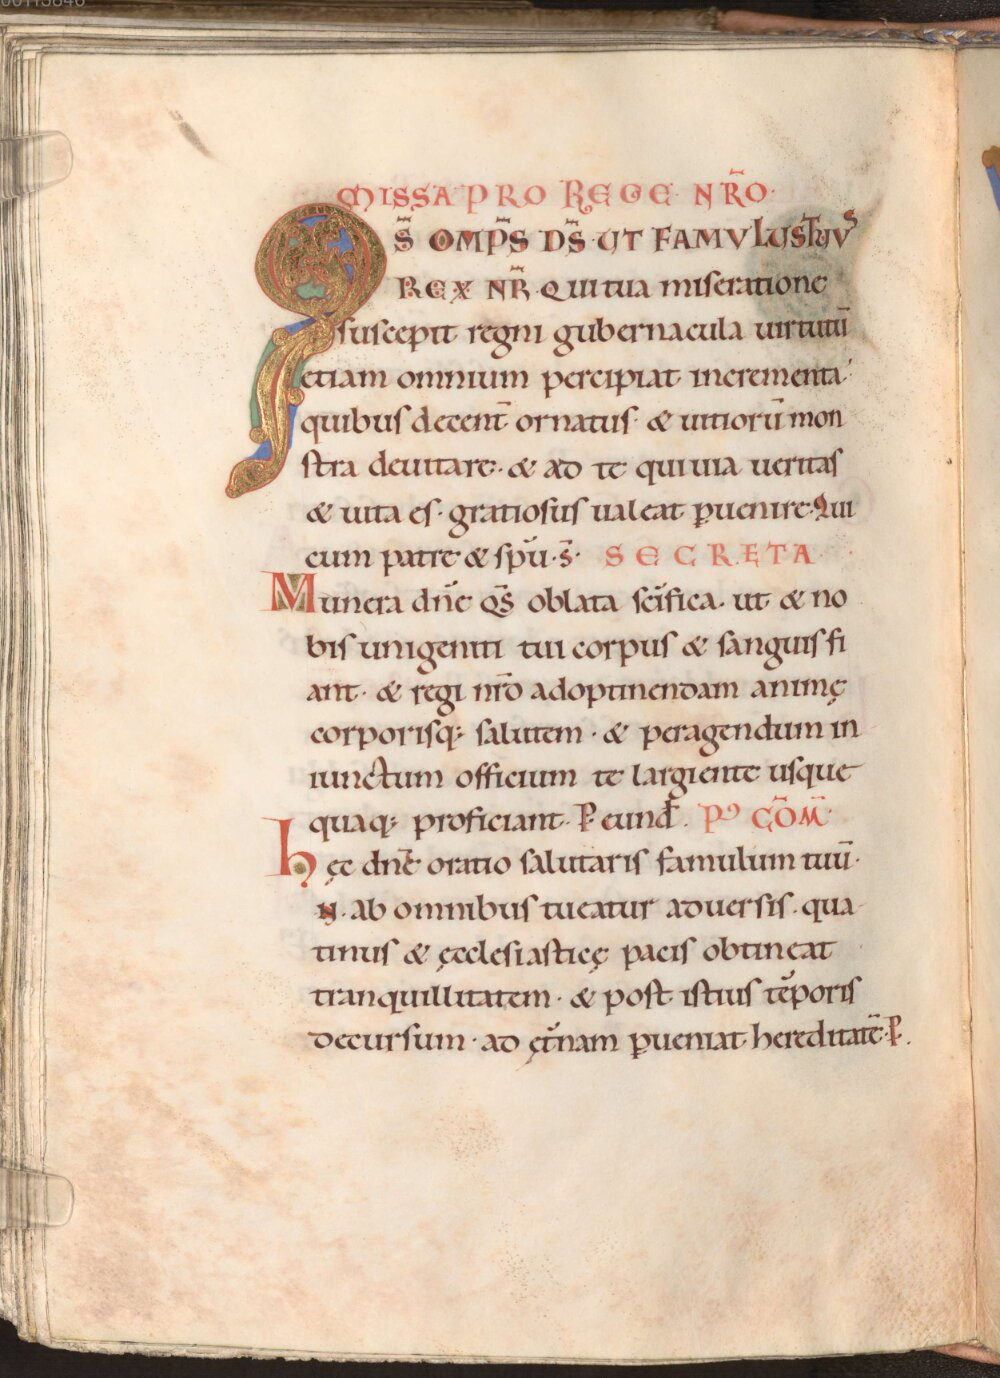 MISSA PRO REGE NR̄O
QS̄ OMP̄S DS̄ UT FAMULUS TUUS
REX NR̄ QUI tua miseratione
suscepit regni gubernacula uirtutū
etiam omnium percipiat incrementa
quibus decent̄ ornatus · & uitiorū mon
stra deuitare · & ad te qui uia ueritas
& uita es · gratiosus ualeat ꝑuenire · Qui
cum patre & spū · s̄ · SECRETA
Munera dn̄e qs̄ oblata sc̄ifica · ut & no
bis unigeniti tui corpus & sanguis fi
ant · & regi nr̄o adoptinendam animę
corporisq; salutem · & peragendum in
iunctum officium te largiente usque
quaq; proficiant · P̲ eund̄ · Pꝰ CŌM̄
hęc dn̄e oratio salutaris famulum tuū ·
N · ab omnibus tueatur aduersis · qua
tinus & ęcclesiasticę pacis obtineat
tranquillitatem · & post istius tēporis
decursum · ad ęt̄nam ꝑueniat hereditatē · P̲ .